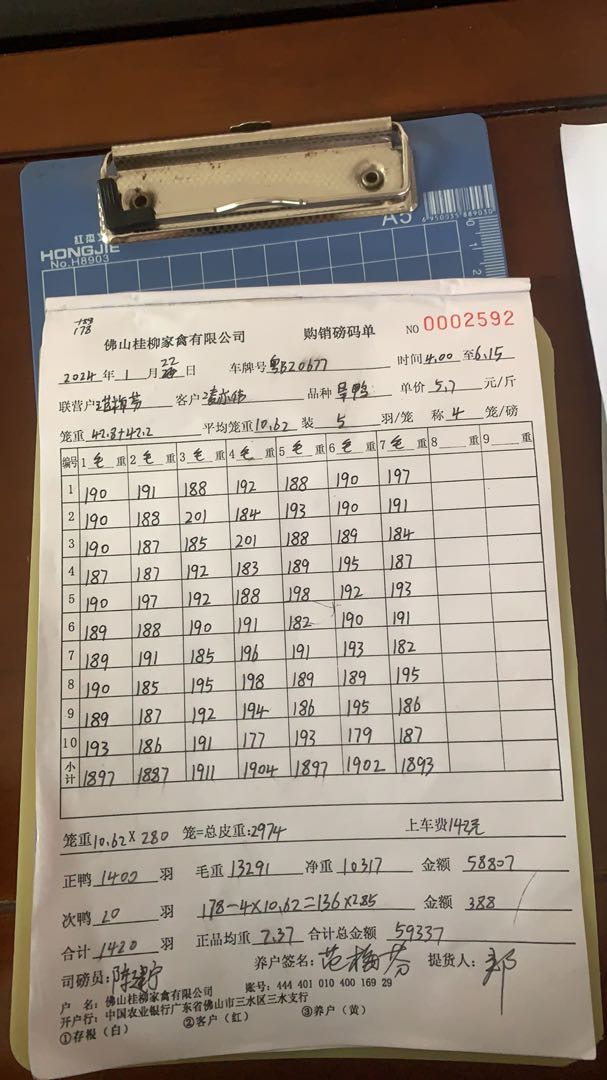 红杰
HONGJIE
No.H8903
A5
6 950035 889030
0
1
2
178
佛山桂柳家禽有限公司 购销磅码单 NO 0002592
2024年1月22日 车牌号粤BZ0677 时间4.00至6.15
联营户范梅芬 客户 品种旱鸭 单价5.7元/斤
笼重42.8+42.2 平均笼重10.62 装5羽/笼 称4笼/磅
编号 1毛重 2毛重 3毛重 4毛重 5毛重 6毛重 7毛重 8 重 9 重
1 190 191 188 192 188 190 197
2 190 188 201 184 193 190 191
3 190 187 185 201 188 189 184
4 187 187 192 183 189 195 187
5 190 197 192 188 198 192 193
6 189 188 190 191 182 190 191
7 189 191 185 196 191 193 182
8 190 185 195 198 189 189 195
9 189 187 192 194 186 195 186
10 193 186 191 177 193 179 187
小计 1897 1887 1911 1904 1897 1902 1893
笼重10.62×280笼=总皮重:2974 上车费142元
正鸭1400羽 毛重13291 净重10317 金额58807
次鸭20羽 178-4×10.62=136×2.85 金额388
合计1420羽 正品均重7.37 合计总金额59337
司磅员: 养户签名:范梅芬 提货人:郭
户 名:佛山桂柳家禽有限公司 账号:444 401 010 400 169 29
开户行:中国农业银行广东省佛山市三水区三水支行
①存根(白) ②客户(红) ③养户(黄)